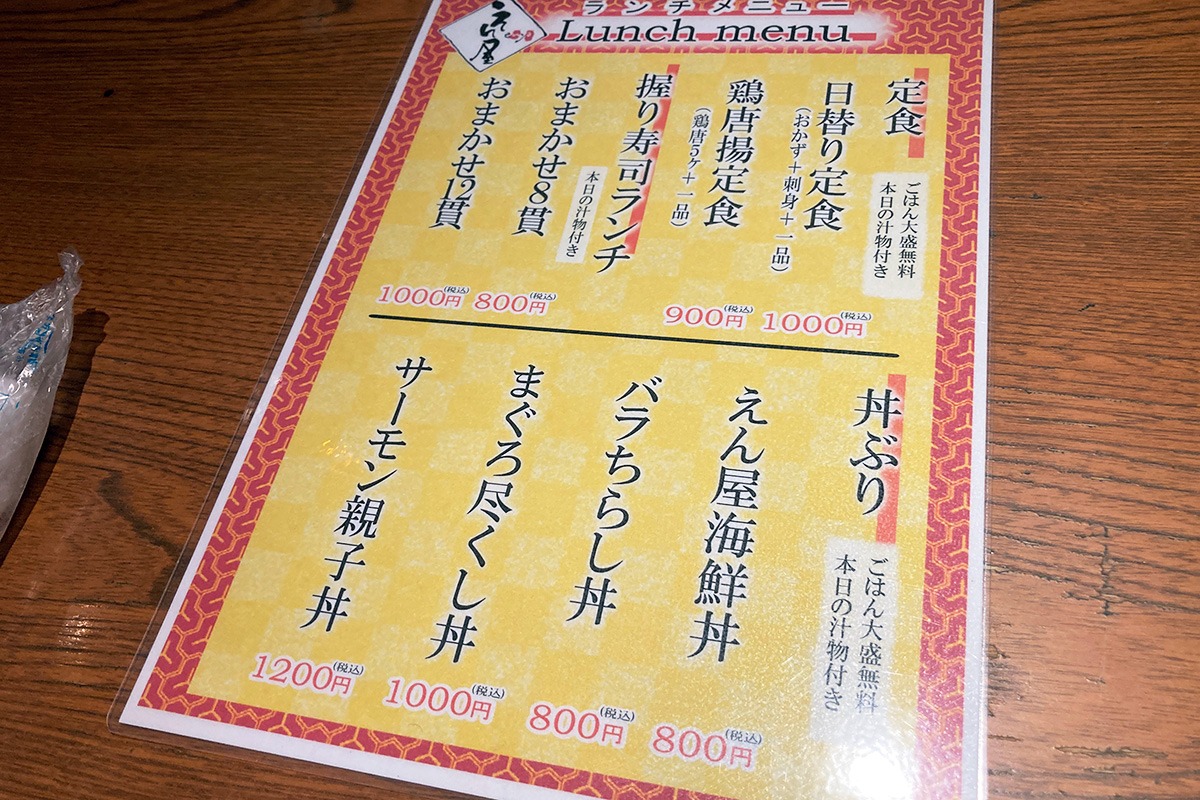 えん屋
ランチメニュー
Lunch menu
定食
ごはん大盛無料
本日の汁物付き
日替り定食
(おかず+刺身+一品)
1000円(税込)
鶏唐揚定食
(鶏唐5ヶ+一品)
900円(税込)
握り寿司ランチ
本日の汁物付き
おまかせ8貫
800円(税込)
おまかせ12貫
1000円(税込)
丼ぶり
ごはん大盛無料
本日の汁物付き
えん屋海鮮丼
800円(税込)
バラちらし丼
800円(税込)
まぐろ尽くし丼
1000円(税込)
サーモン親子丼
1200円(税込)